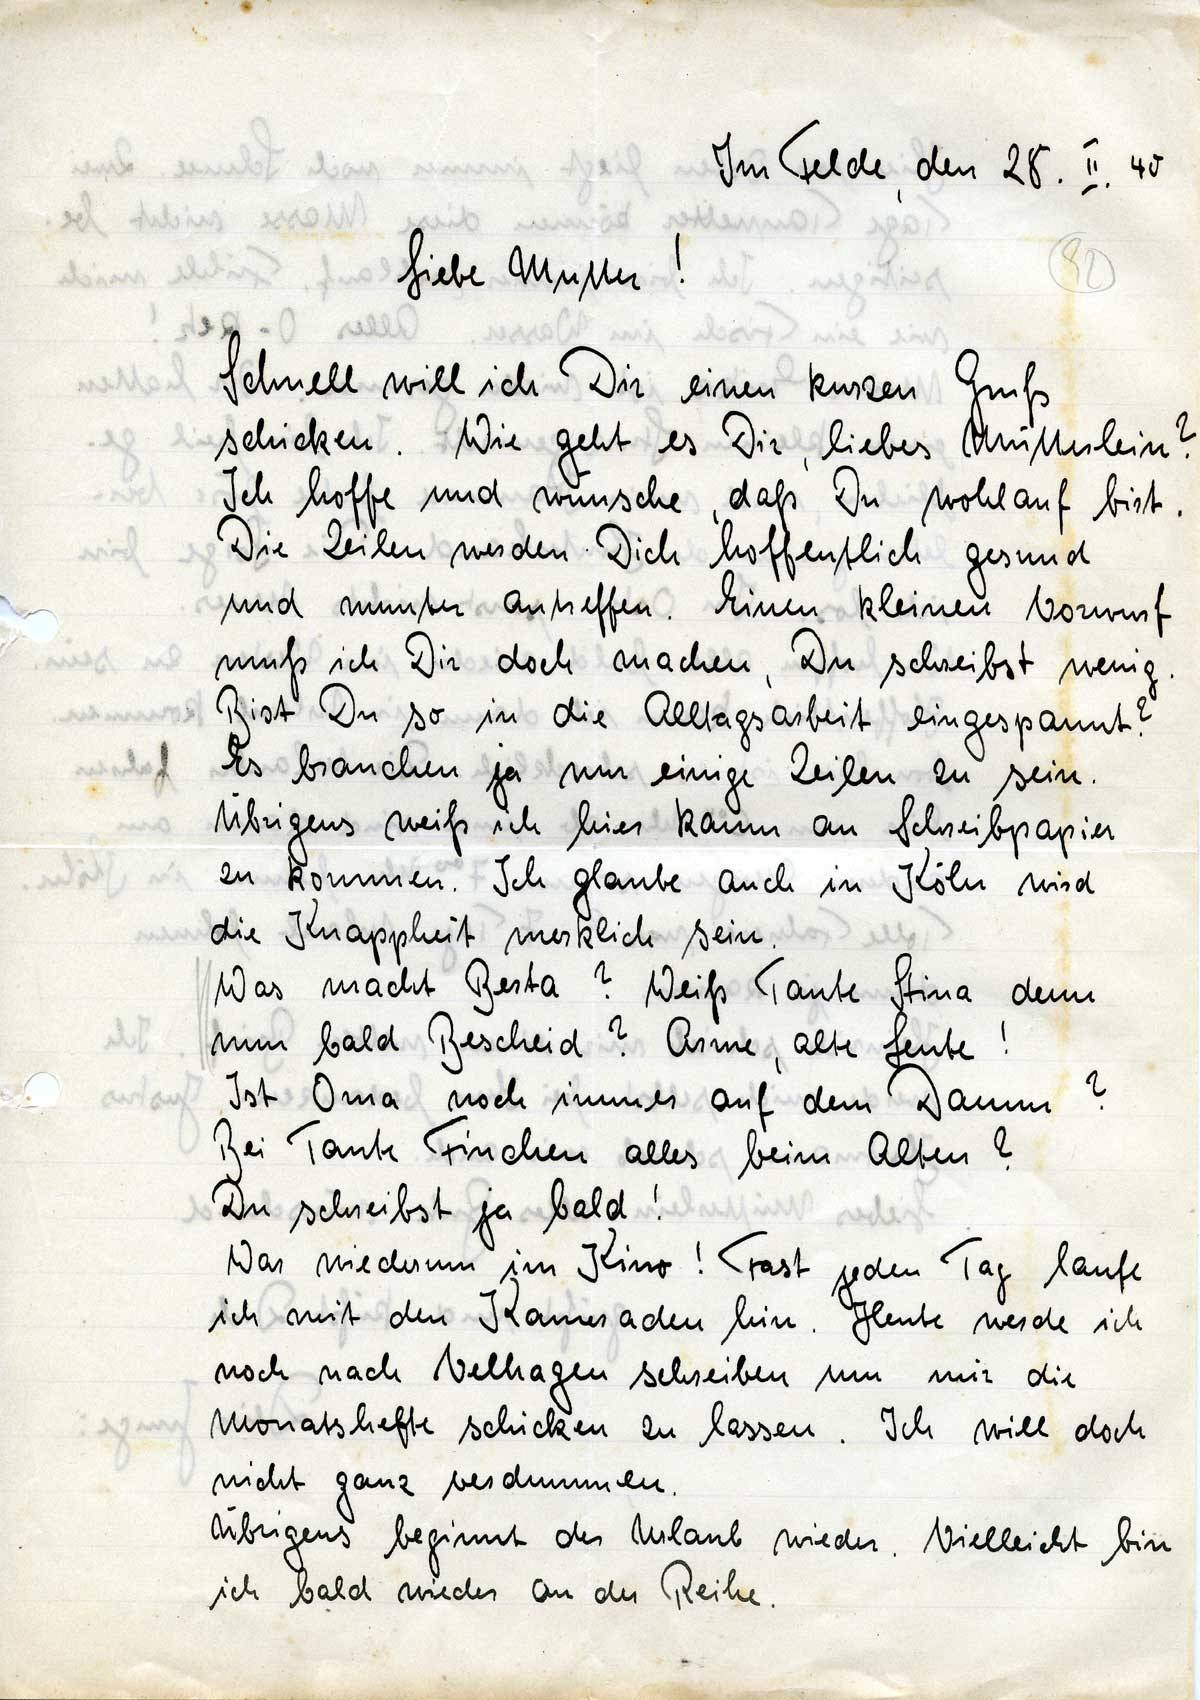 Im Felde, den 28. II. 40
82
Liebe Mutter!
Schnell will ich Dir einen kurzen Gruß
schicken. Wie geht es Dir, liebes Mütterlein?
Ich hoffe und wünsche, daß Du wohlauf bist.
Die Zeilen werden Dich hoffentlich gesund
und munter antreffen. Einen kleinen Vorwurf
muß ich Dir doch machen, Du schreibst wenig.
Bist Du so in die Alltagsarbeit eingespannt?
Es brauchen ja nur einige Zeilen zu sein.
Übrigens weiß ich hier kaum an Schreibpapier
zu kommen. Ich glaube auch in Köln wird
die Knappheit merklich sein.
Was macht Berta? Weiß Tante Stina denn
nun bald Bescheid? Arme, alte Leute!
Ist Oma noch immer auf dem Damm?
Bei Tante Finchen alles beim Alten?
Du schreibst ja bald!
War wiederum im Kino! Fast jeden Tag laufe
ich mit den Kameraden hin. Heute werde ich
noch nach Velhagen schreiben um mir die
Monatshefte schicken zu lassen. Ich will doch
nicht ganz verdummen.
Übrigens beginnt der Urlaub wieder. Vielleicht bin
ich bald wieder an der Reihe.